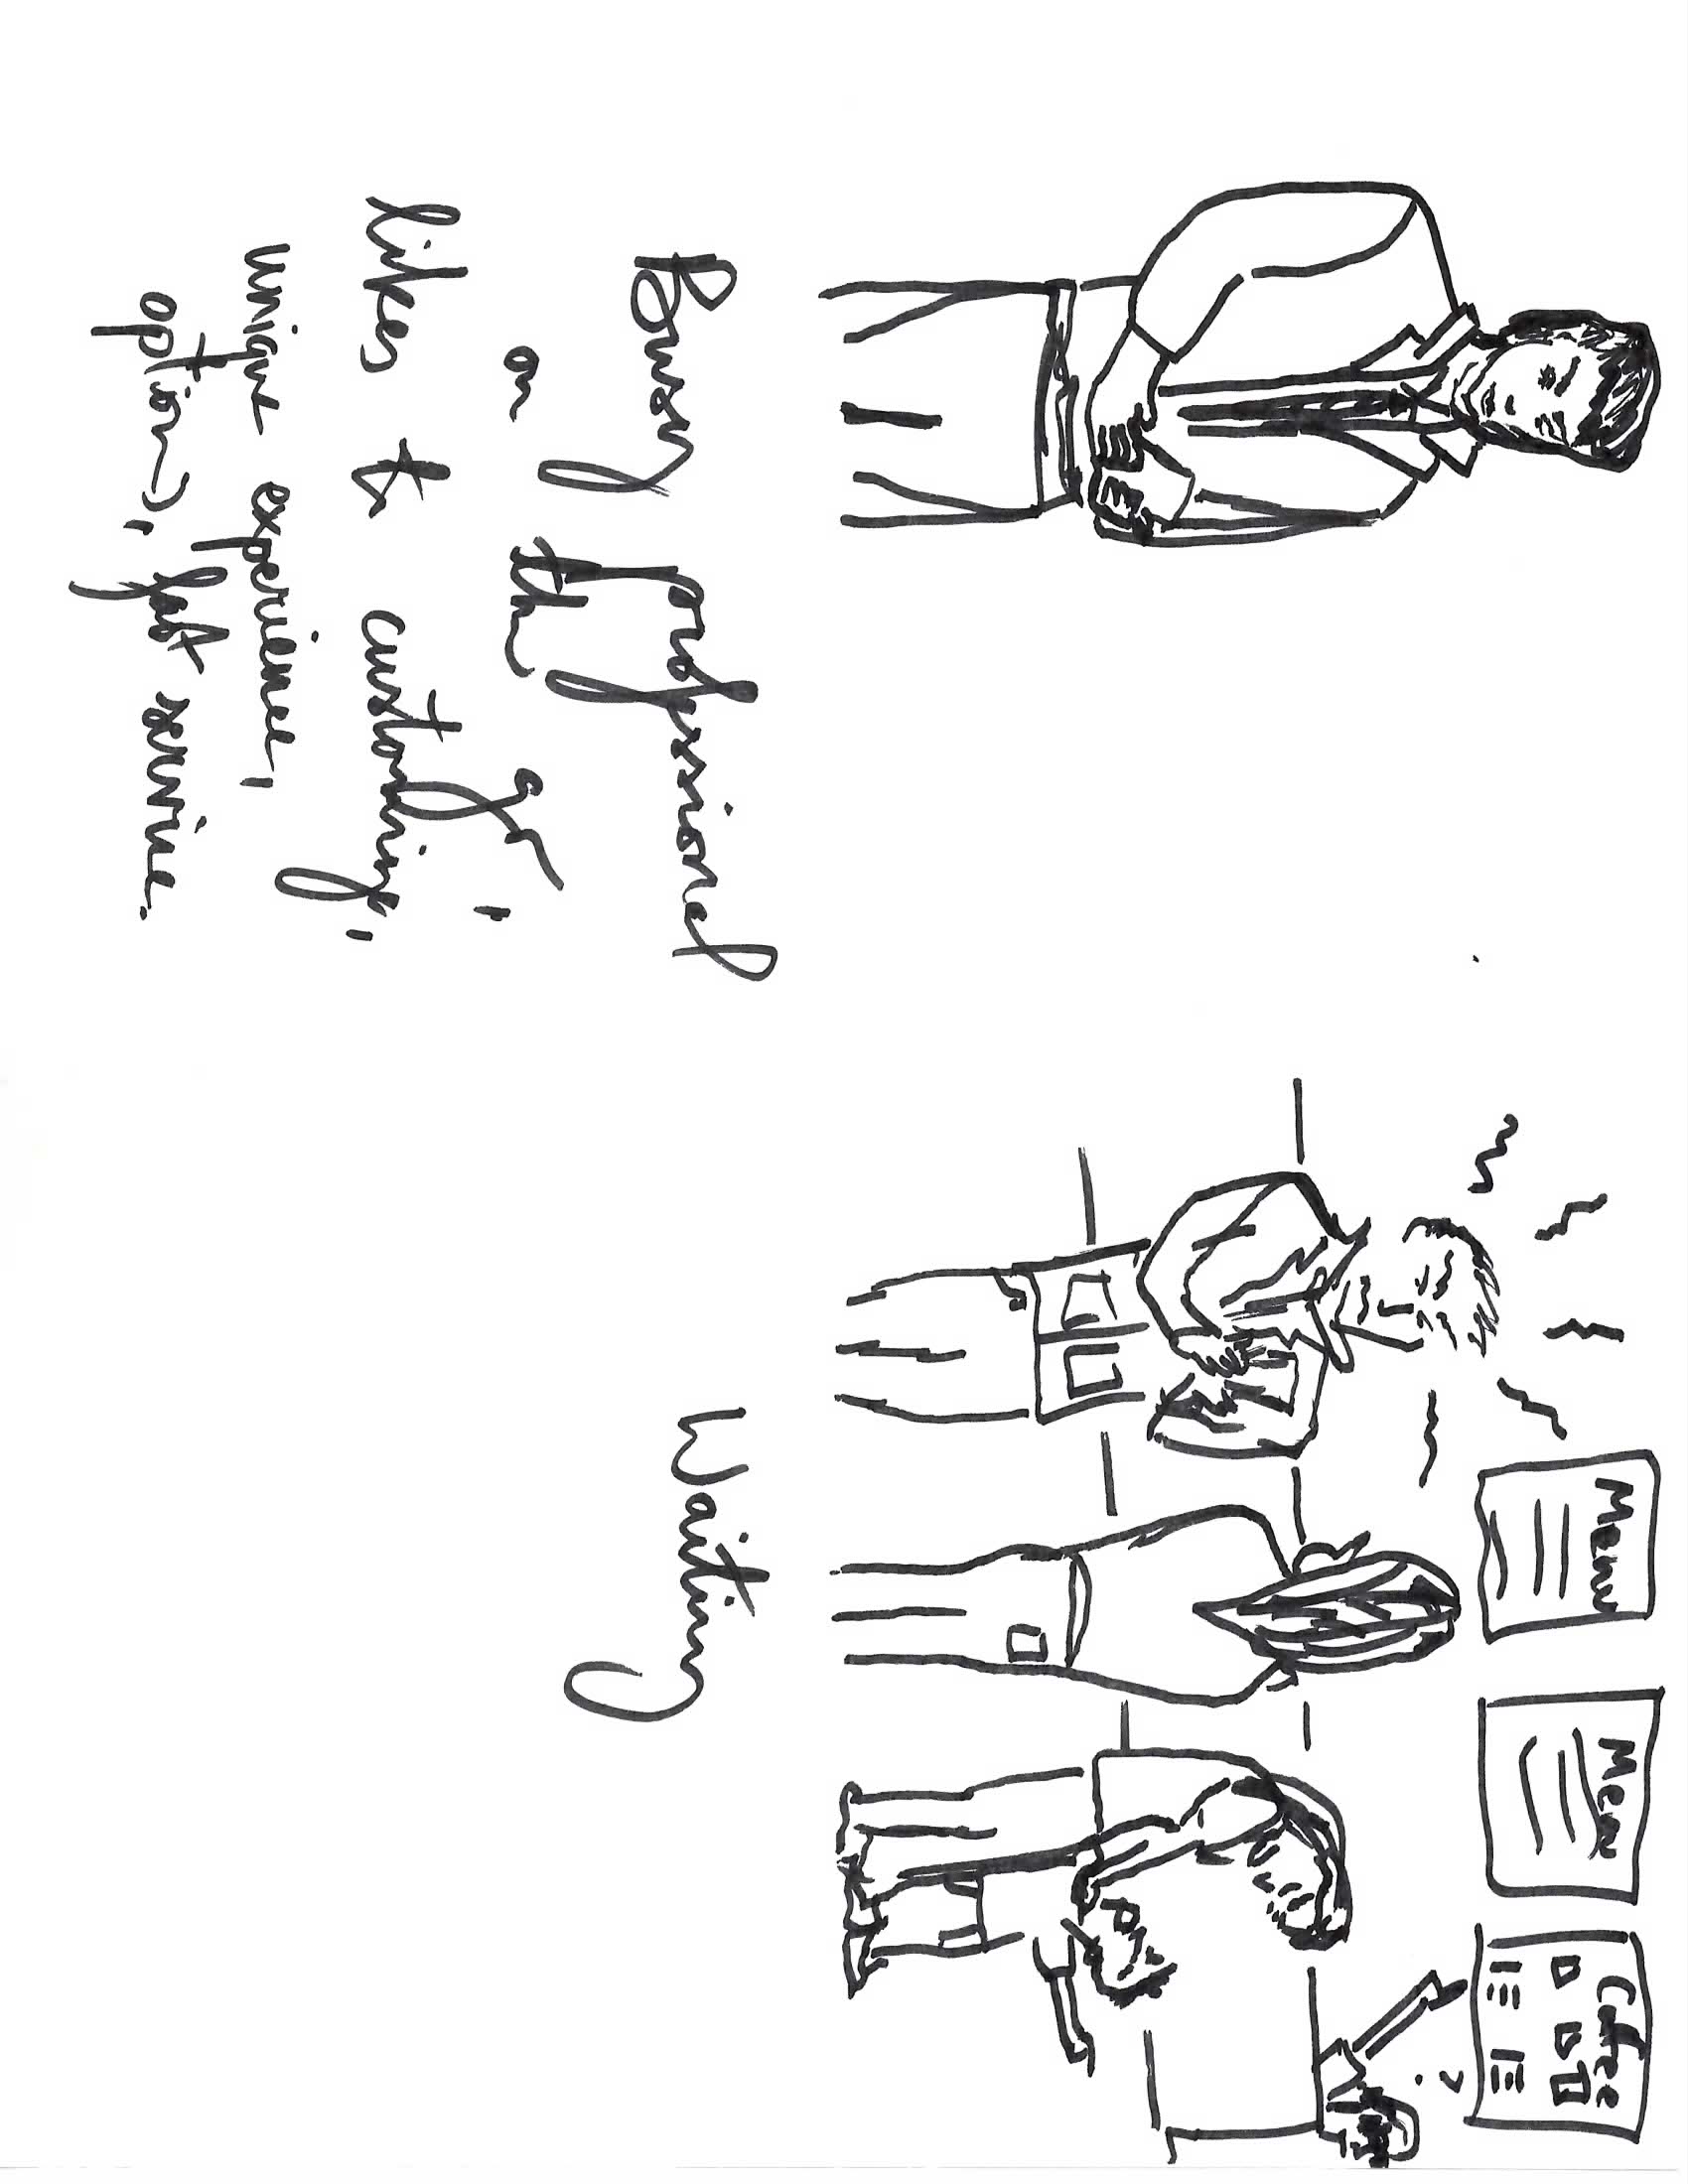 Busy Professional
on the go,
likes to customize,
unique experience,
options, fast service.
Menu
Menu
Cofee
?
Waiting